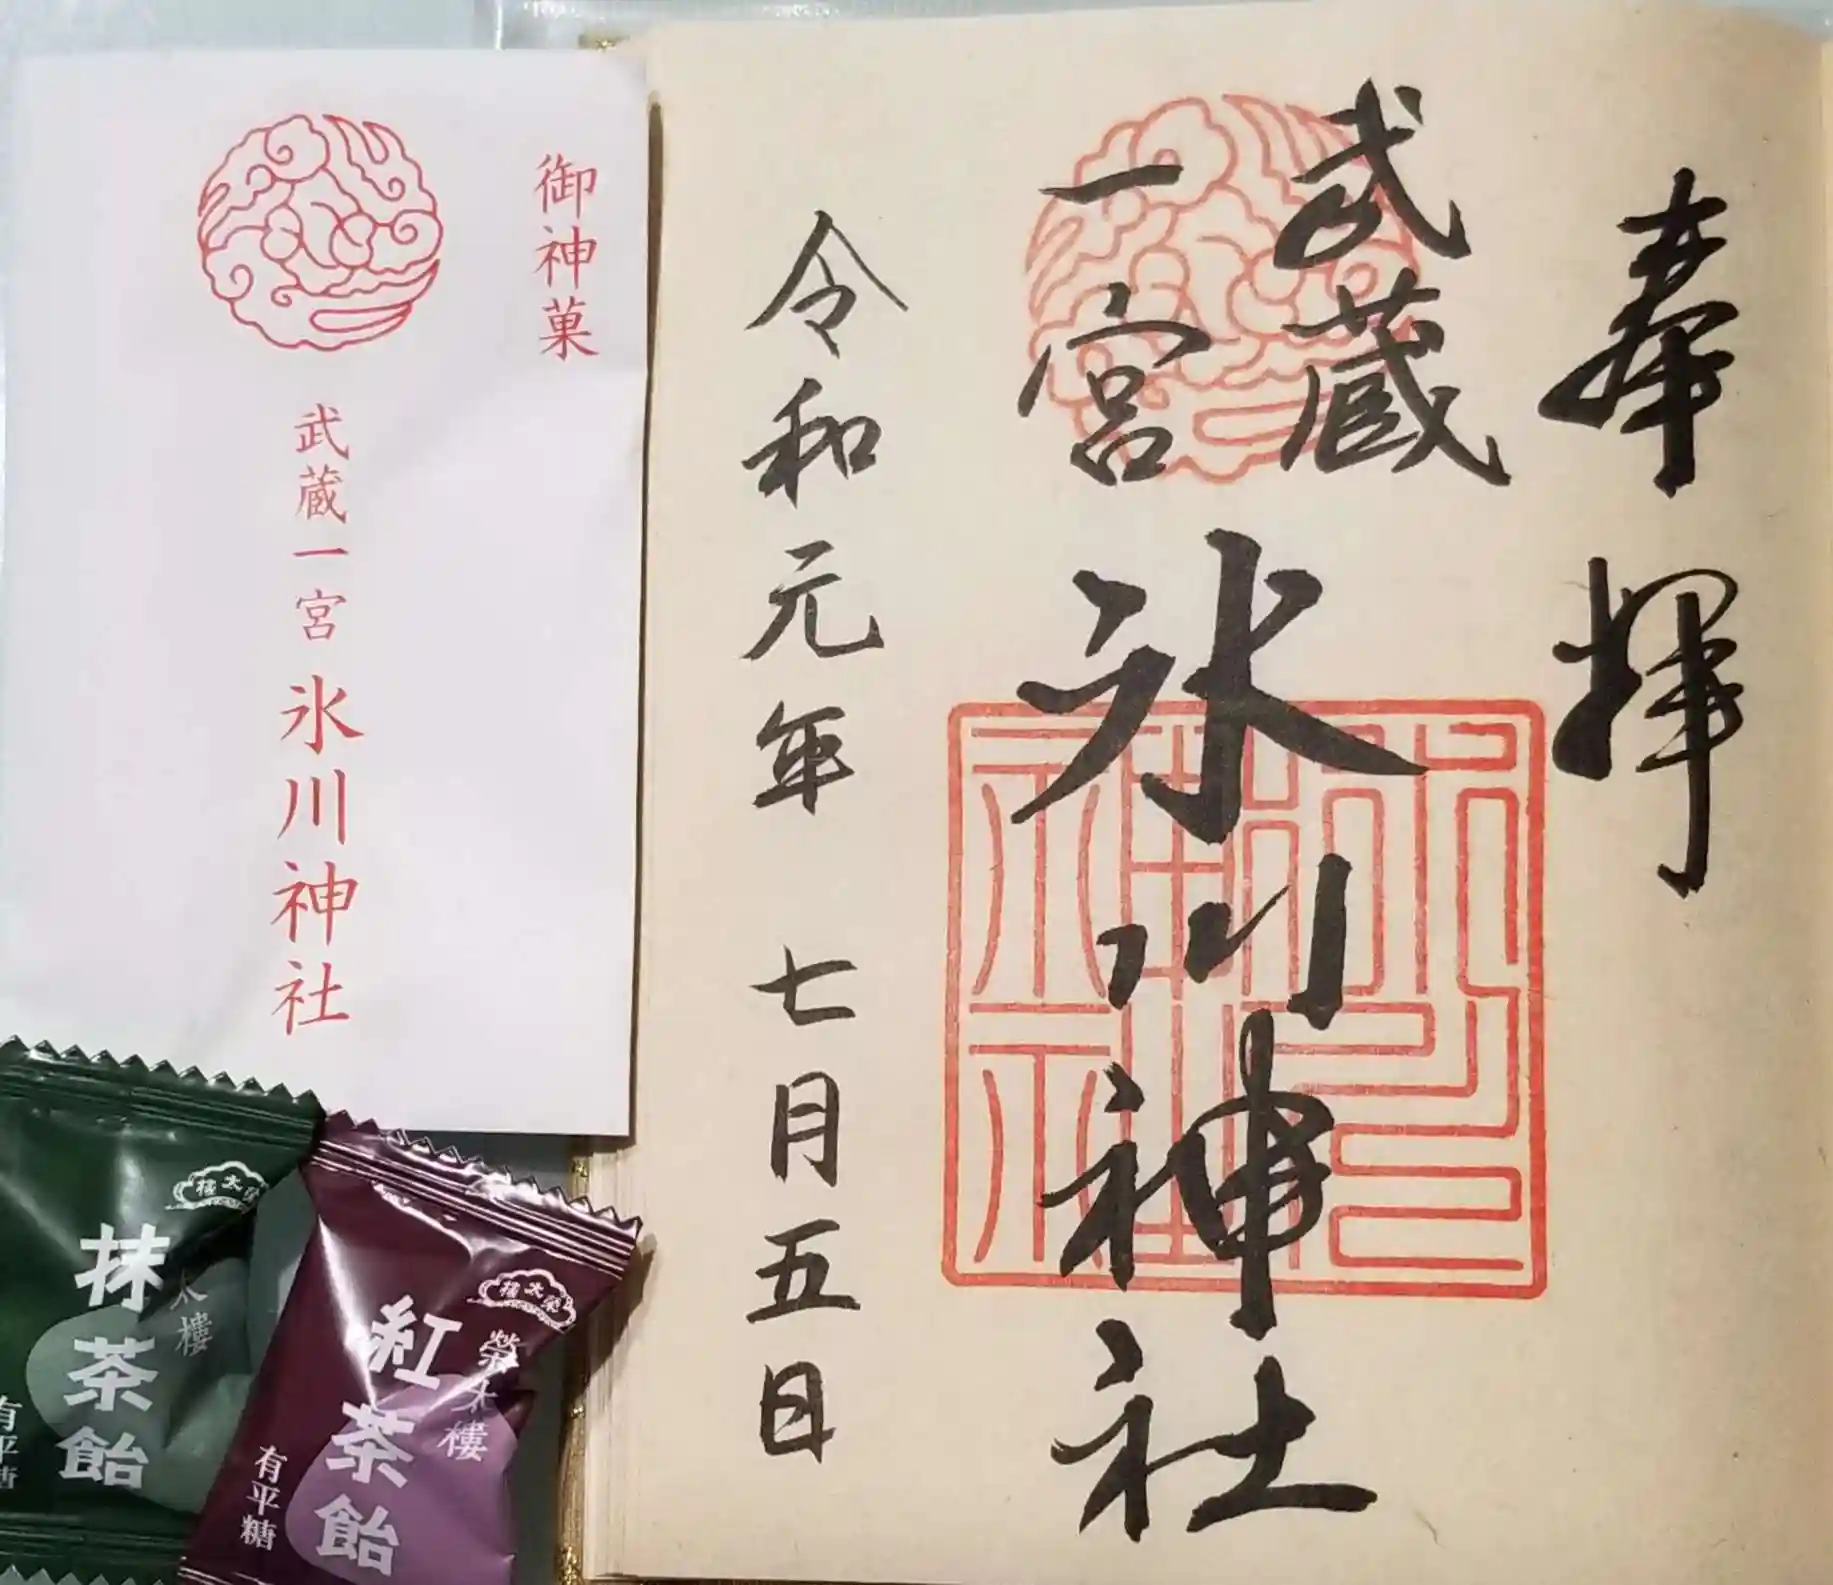 奉拝
武蔵
一宮
氷川神社
令和元年 七月五日
御神菓
武蔵一宮 氷川神社
榮太樓
抹茶飴
太樓
有平糖
榮太樓
榮太樓
紅茶飴
有平糖